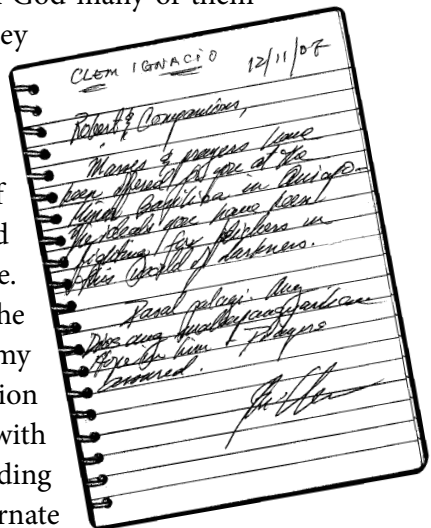 God many of them
ey
f
d
e.
he
my
ion
with
ding
ernate
CLEM IGNACIO 12/11/07
Robert & Companions,
Masses & prayers have
been offered for you at the
Minor Basilica in Quiapo.
The ideals you have been
fighting for flickers in
this world of darkness.
Dasal palagi. Ang
Diyos ang
Hope in him & Prayers